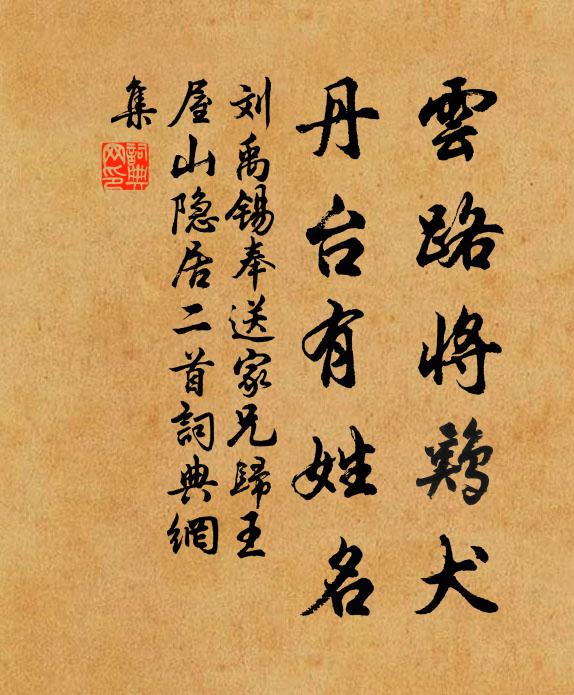 雲路將鷄犬
丹台有姓名
刘禹锡奉送家兄歸王
屋山隐居二首詞典網
集
詞典網印